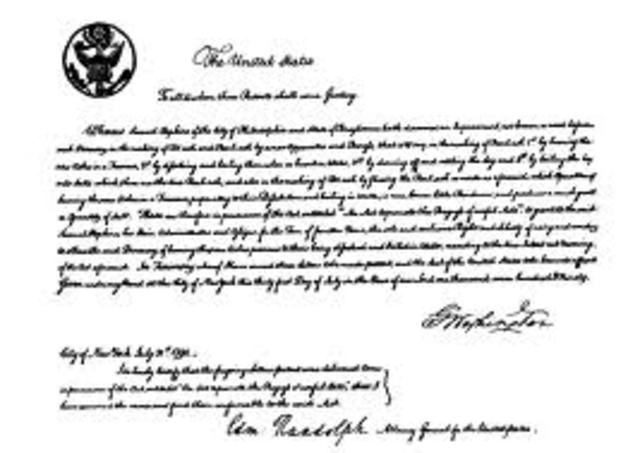 The United States
To all to whom these Presents shall come, Greeting.
Whereas Samuel Hopkins of the City of Philadelphia and State of Pensylvania hath discovered an Improvement, not known or used before
such Discovery, in the making of Pot ash and Pearl ash by a new Apparatus and Process; that is to say, in the making of Pearl ash 1st by burning the
raw Ashes in a Furnace, 2d by dissolving and boiling them when so burnt in Water, 3d by drawing off and settling the Ley, and 4th by boiling the Ley
into Salts which then are the true Pearl ash; and also in the making of Pot ash by fluxing the Pearl ash so made as aforesaid; which Operation of
burning the raw Ashes in a Furnace, preparatory to their Dissolution and boiling in Water, is new, leaves little Residuum; and produces a much greater
Quantity of Salt: These are therefore in pursuance of the Act, entituled "An Act to promote the Progress of useful Arts", to grant to the said
Samuel Hopkins, his Heirs, Administrators and Assigns, for the Term of fourteen Years, the sole and exclusive Right and Liberty of using and vending
to others the said Discovery of burning the raw Ashes previous to their being dissolved and boiled in Water, according to the true Intent and Meaning
of the Act aforesaid. In Testimony whereof I have caused these Letters to be made patent, and the Seal of the United States to be hereunto affixed
Given under my Hand at the City of New York this thirty first Day of July in the Year of our Lord one thousand seven hundred & Ninety.
G Washington
City of New York July 31st 1790.
I do hereby certify that the foregoing Letters patent were delivered to me
in pursuance of the Act, entituled "An Act to promote the Progress of useful Arts"; that I
have examined the same, and find them conformable to the said Act.
Edm Randolph Attorney General for the United States.